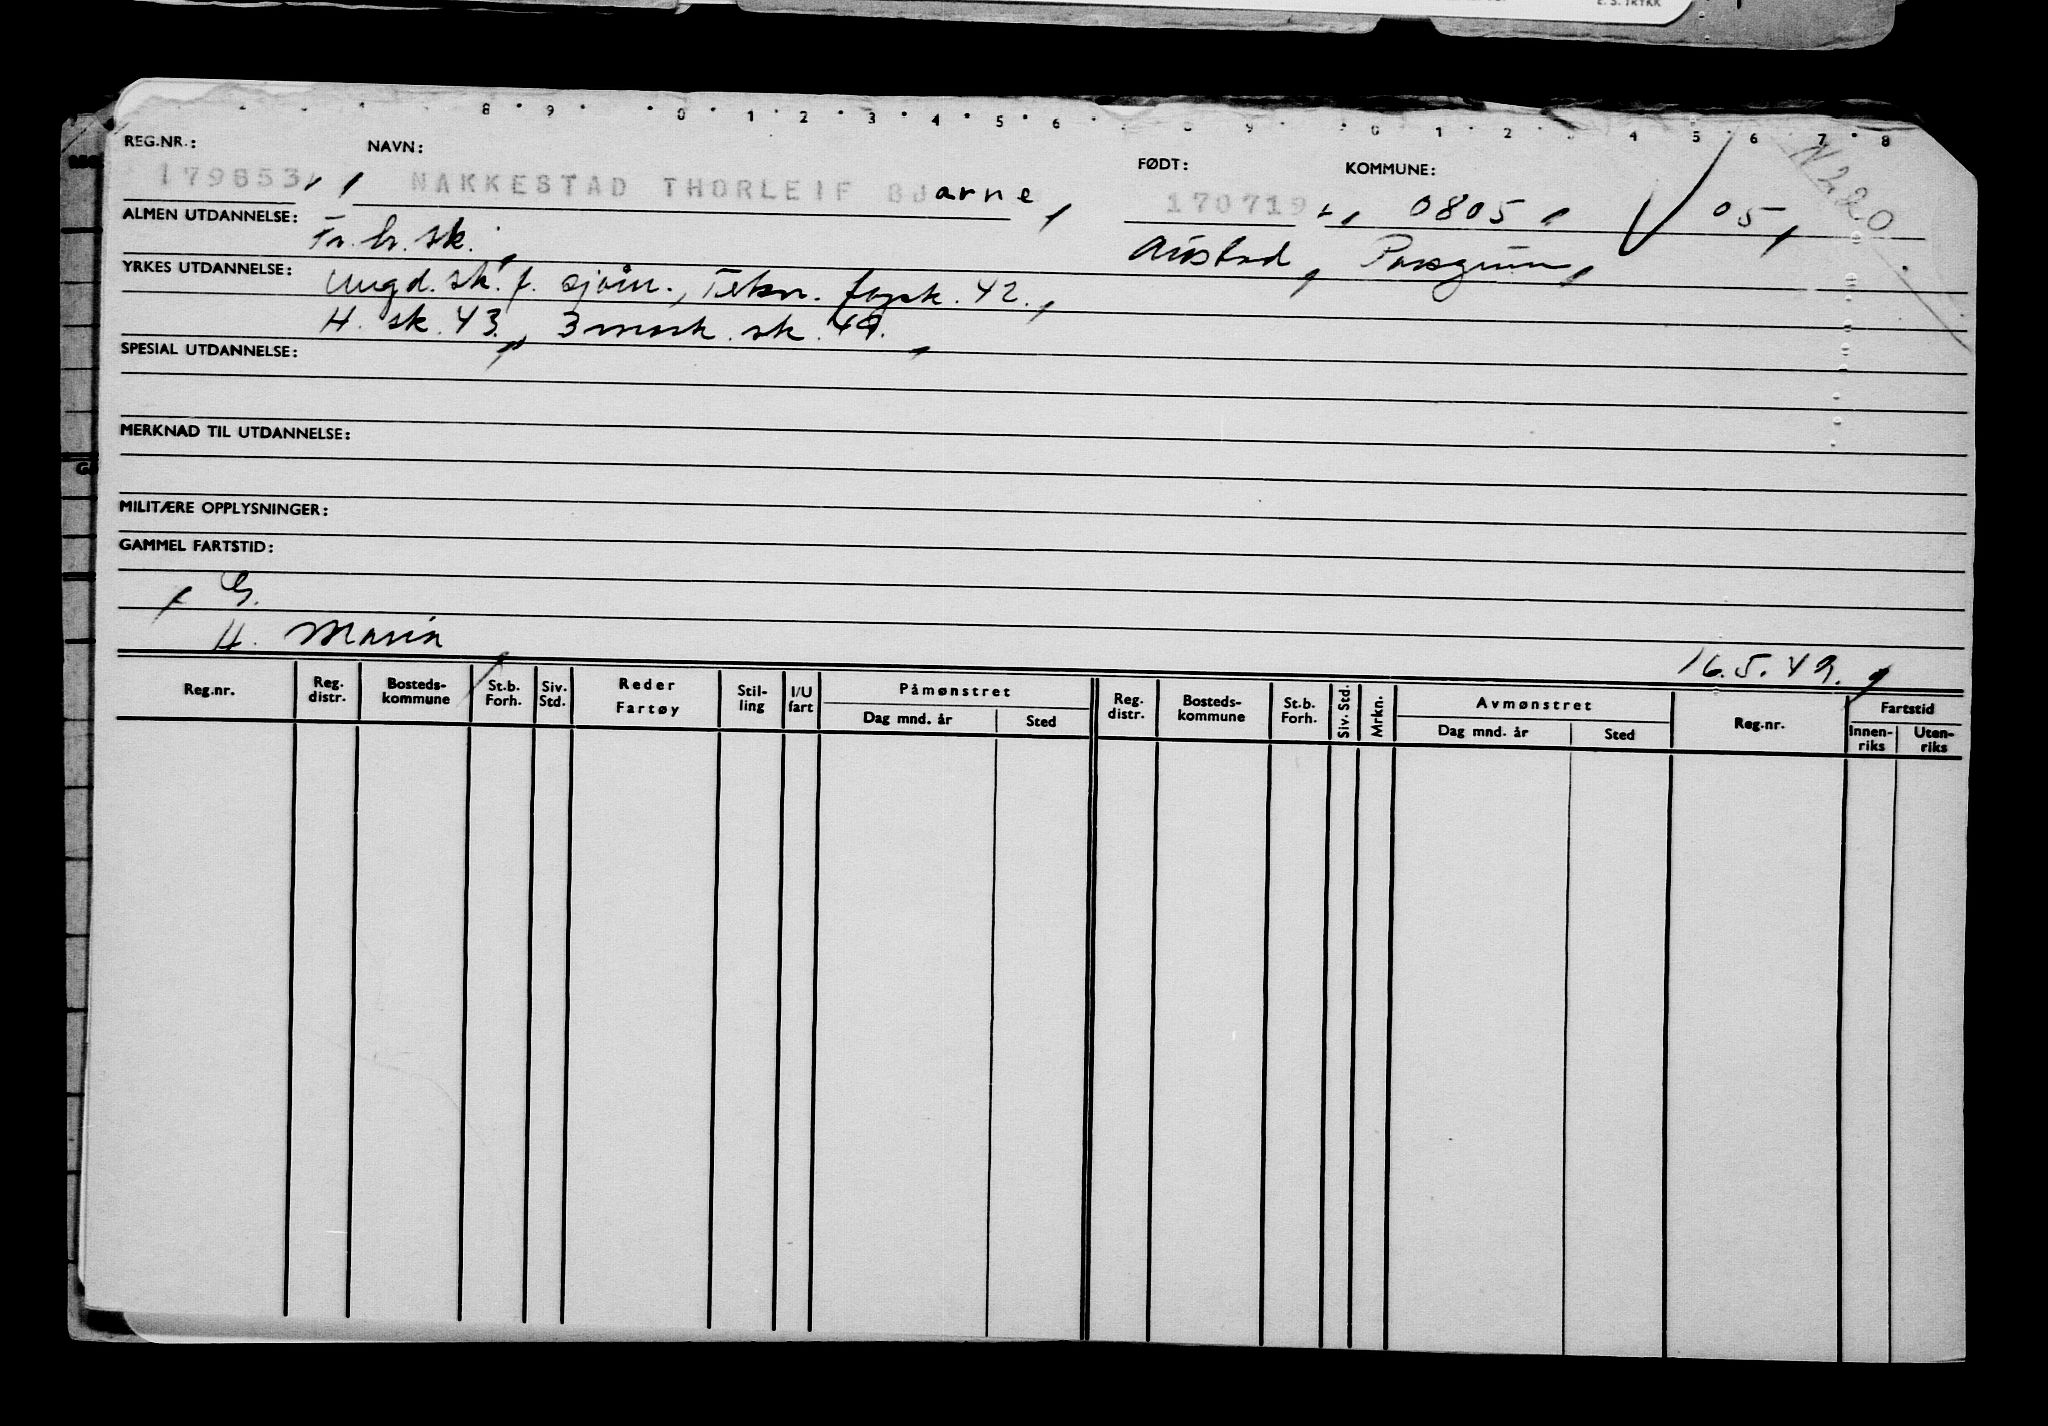 E. S. TRYKK
8 9 0 1 2 3 4 5 6 8 9 0 1 2 3 4 5 6 7 8
REG.NR.: NAVN: FØDT: KOMMUNE: N220
179853 NAKKESTAD THORLEIF BJarne, 170719 0805 05,
ALMEN UTDANNELSE: Fr. h. sk. Austad, Porsgrunn,
YRKES UTDANNELSE: Ungd. sk. f. sjøm., Tekn. fagsk. 42.,
H. sk. 43., 3 mask. sk. 49.
SPESIAL UTDANNELSE:
MERKNAD TIL UTDANNELSE:
MILITÆRE OPPLYSNINGER:
GAMMEL FARTSTID:
G.
H. Maria 16.5.49.
Reg.nr. Reg. distr. Bosteds-kommune St.b. Forh. Siv. Std. Reder Fartøy Stil-ling I/U fart Påmønstret Reg. distr. Bosteds-kommune St.b. Forh. Siv. Std. Mrkn. Avmønstret Reg.nr. Fartstid
Dag mnd. år Sted Dag mnd. år Sted Innen-riks Uten-riks